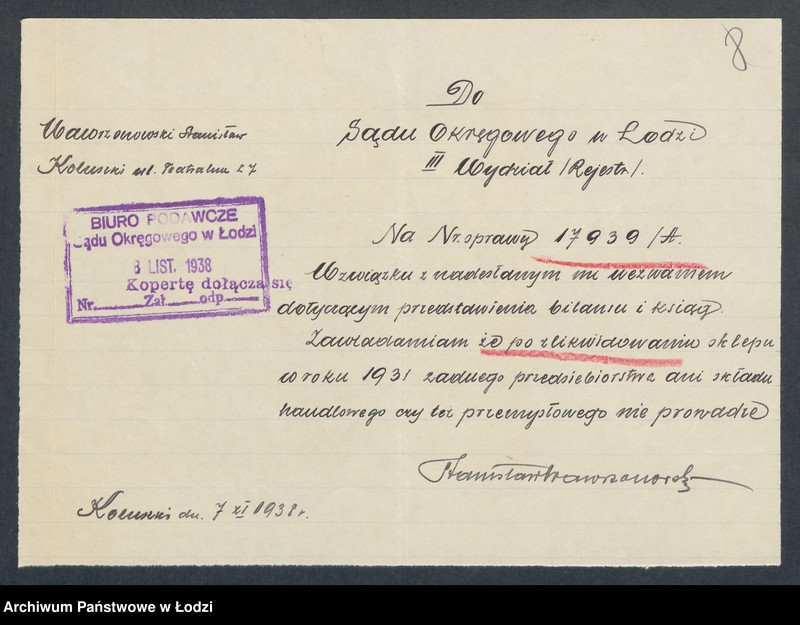 8
Do
Sądu Okręgowego w Łodzi
III Wydział /Rejestr./.
Wawrzonowski Stanisław
Koluszki ul. Teatralna 27
BIURO PODAWCZE
Sądu Okręgowego w Łodzi
8 LIST. 1938
Kopertę dołącza się
Nr. Zał odp
Na Nr. sprawy 17939/A.
W związku z nadesłanym mi wezwaniem
dotyczącym przedstawienia bilansu i ksiąg.
Zawiadamiam że po zlikwidowaniu sklepu
w roku 1931 żadnego przedsiębiorstwa ani składu
handlowego czy też przemysłowego nie prowadzę
Stanisław Wawrzonowski
Koluszki dn. 7 XI 1938 r.
Archiwum Państwowe w Łodzi